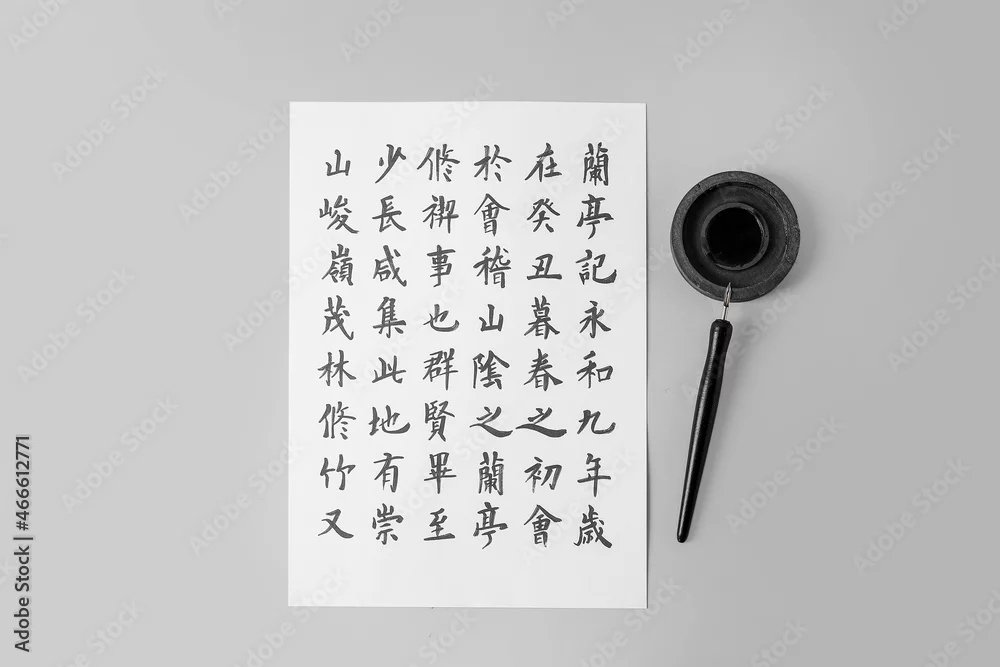 蘭亭記永和九年歲
在癸丑暮春之初會
於會稽山陰之蘭亭
修禊事也群賢畢至
少長咸集此地有崇
山峻嶺茂林修竹又
Adobe Stock | #466612771